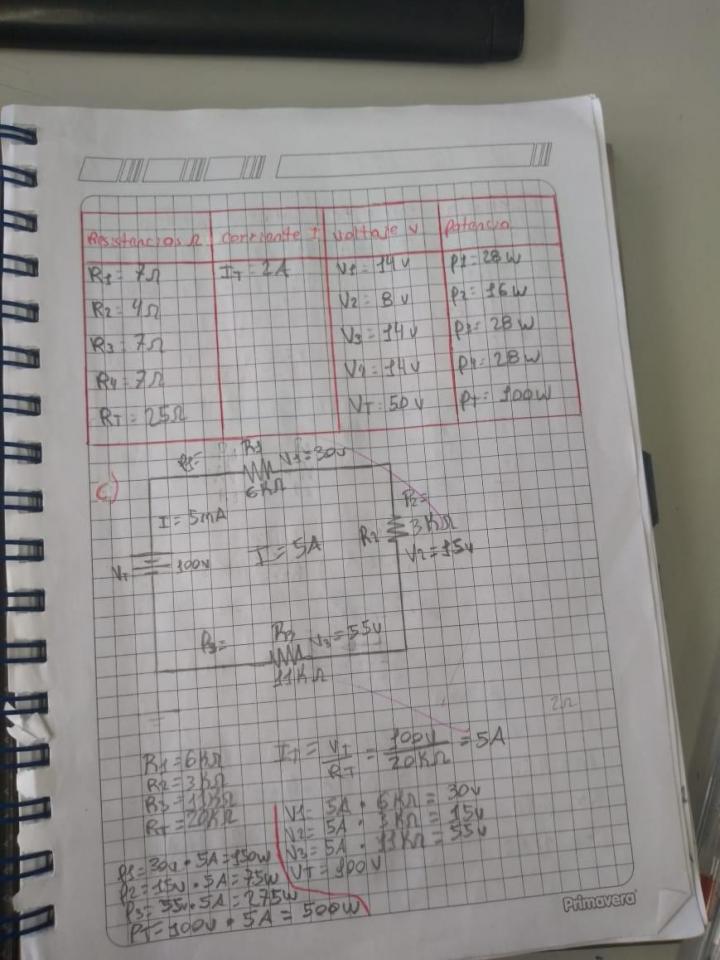 Resistencias Ω Corriente I Voltaje V Potencia
R1 = 7Ω IT = 2A V1 = 14v P1 = 28w
R2 = 4Ω V2 = 8v P2 = 16w
R3 = 7Ω V3 = 14v P3 = 28w
R4 = 7Ω V4 = 14v P4 = 28w
RT = 25Ω VT = 50v PT = 100w
c)
P1= R1 V1 = 30v
6KΩ
I = 5mA
P2=
R2 3KΩ
V2 = 15v
VT 100v I = 5A
P3= R3 V3 = 55v
11KΩ
2Ω
R1 = 6KΩ
R2 = 3KΩ
R3 = 11KΩ
RT = 20KΩ
IT = VT / RT = 100v / 20KΩ = 5A
V1 = 5A • 6KΩ = 30v
V2 = 5A • 3KΩ = 15v
V3 = 5A • 11KΩ = 55v
VT = 100v
P1 = 30v • 5A = 150w
P2 = 15v • 5A = 75w
P3 = 55v • 5A = 275w
PT = 100v • 5A = 500w
Primavera